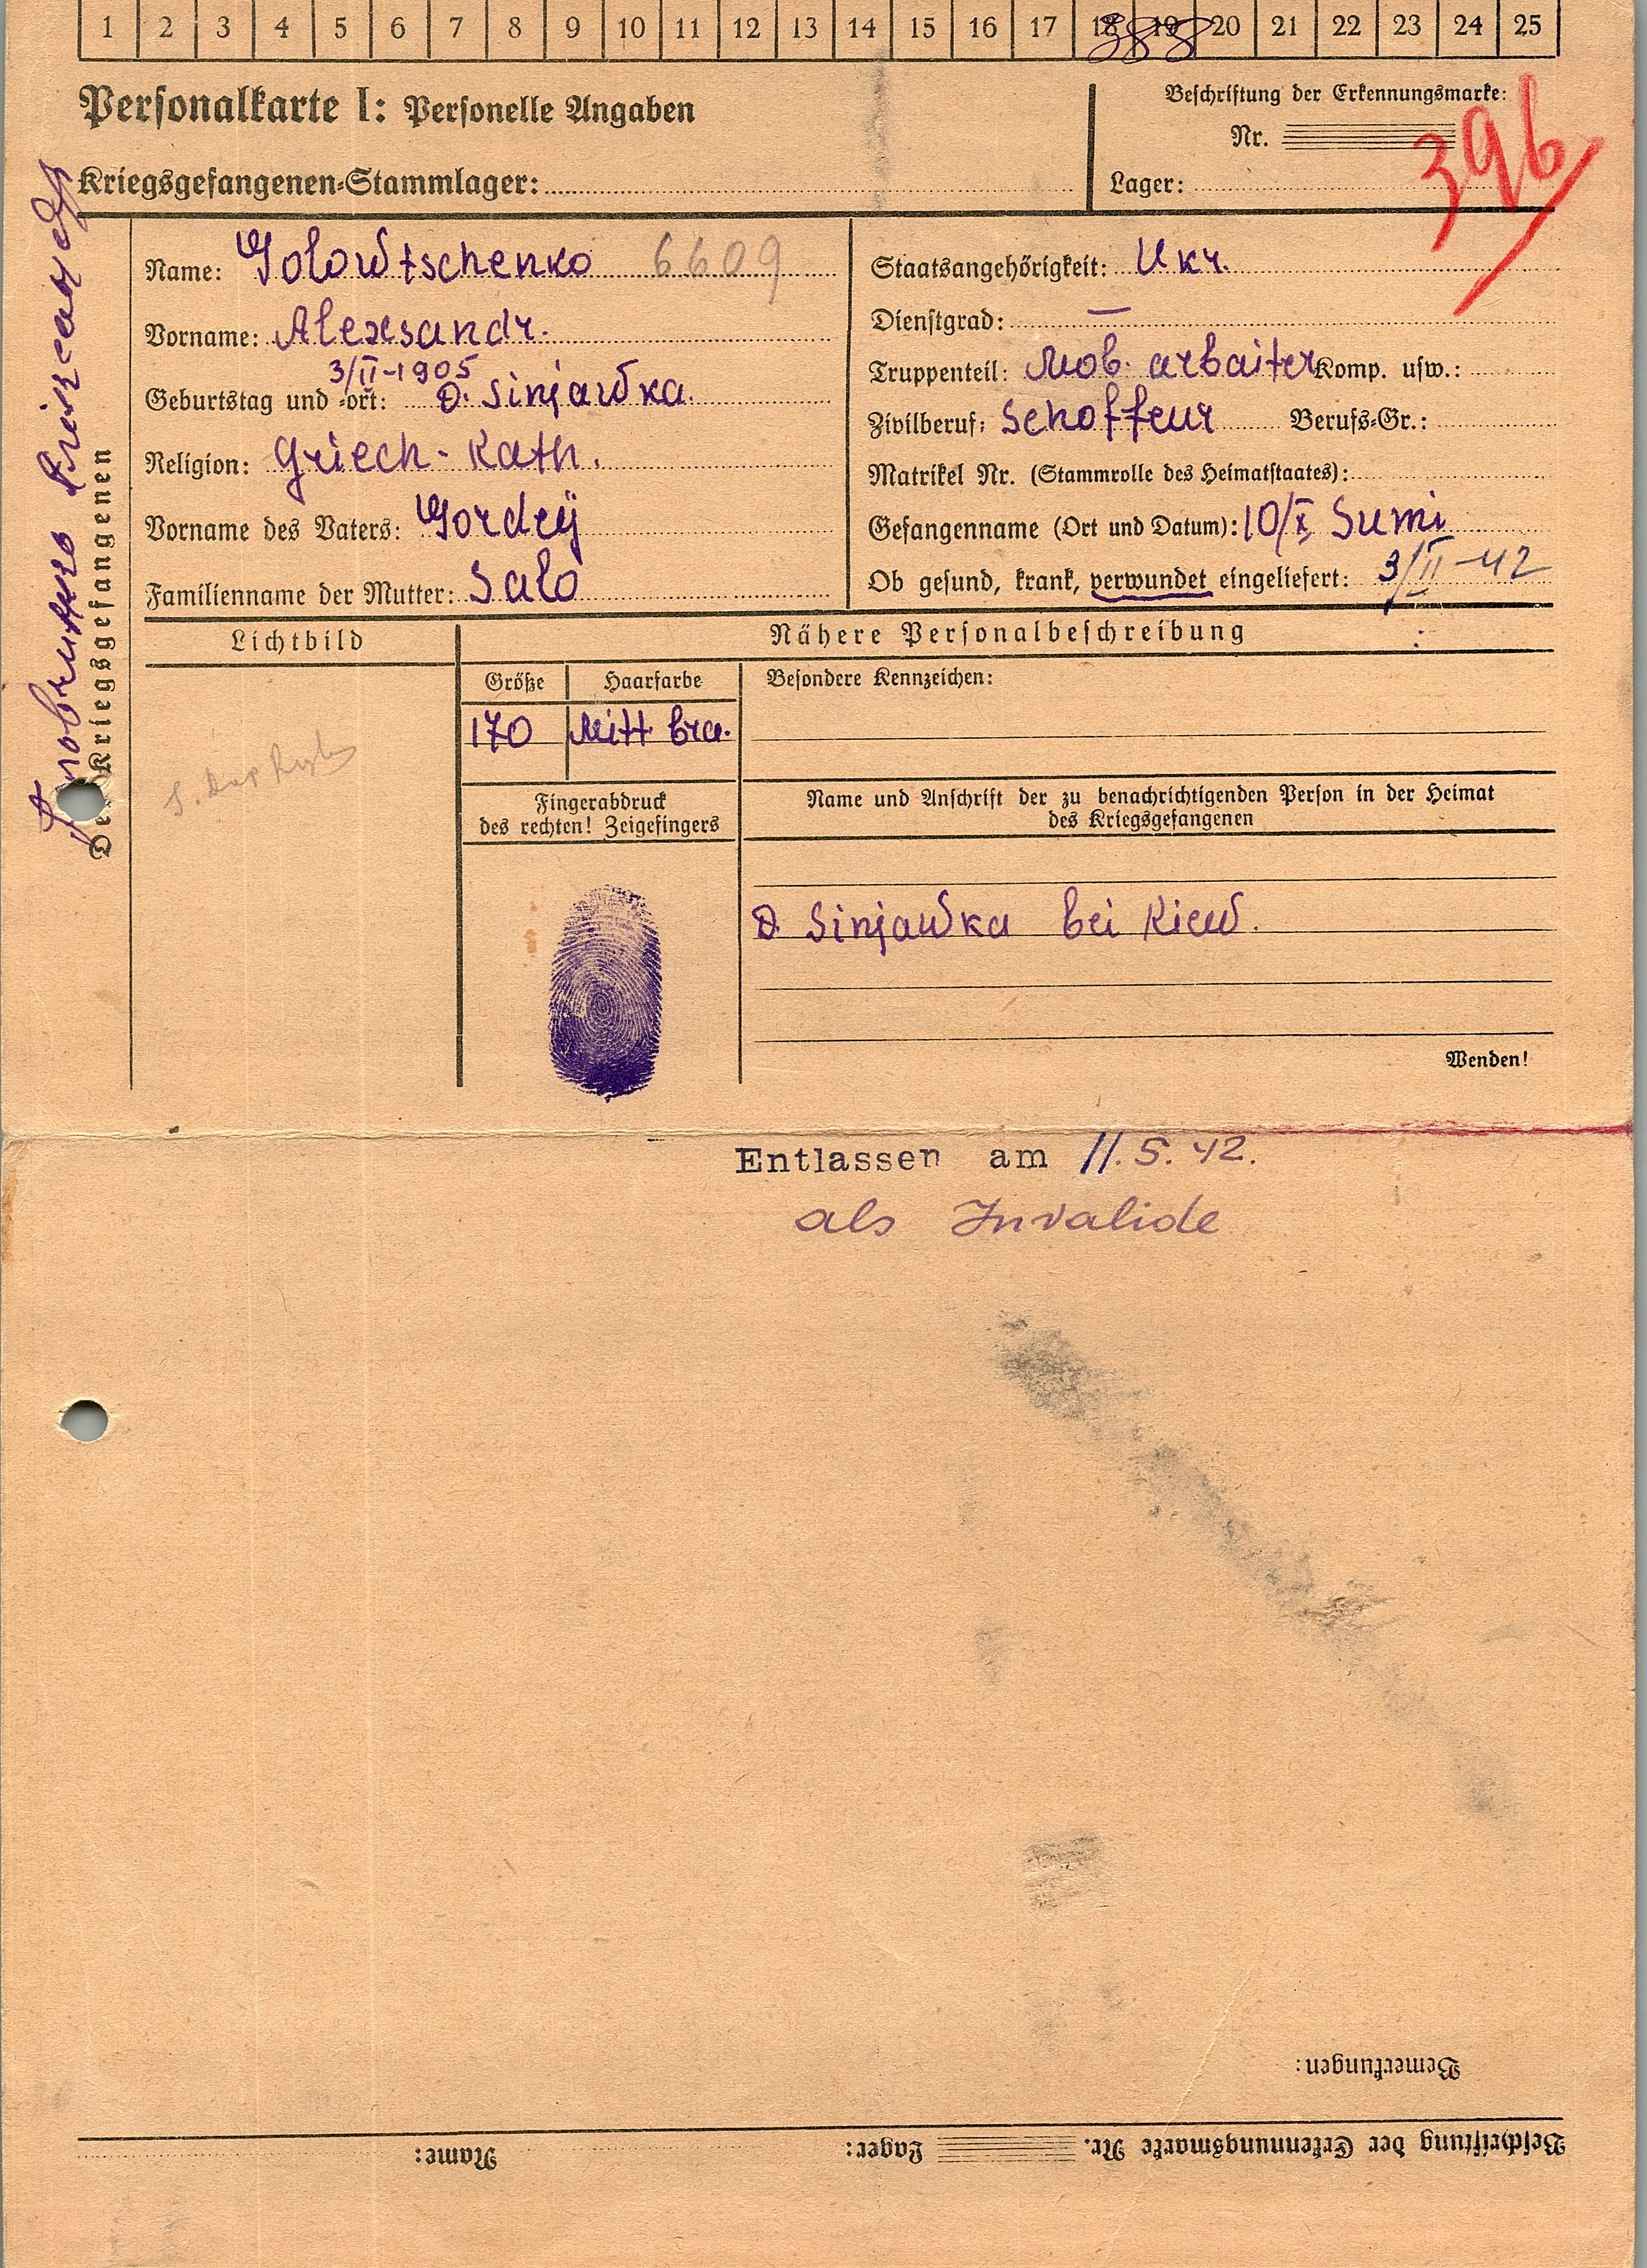 1 2 3 4 5 6 7 8 9 10 11 12 13 14 15 16 17 18 19 20 21 22 23 24 25
388
Personalkarte I: Personelle Angaben
Beschriftung der Erkennungsmarke:
Nr.
396
Kriegsgefangenen-Stammlager:
Lager:
Name: Golowtschenko 6609
Vorname: Alexsandr.
3/II-1905
Geburtstag und -ort: D. Sinjawka.
Religion: Griech-Kath.
Vorname des Vaters: Gordeÿ
Familienname der Mutter: Salo
Staatsangehörigkeit: Ukr.
Dienstgrad: —
Truppenteil: Mob. arbaiter Komp. usw.:
Zivilberuf: Schoffeur Berufs-Gr.:
Matrikel Nr. (Stammrolle des Heimatstaates):
Gefangenname (Ort und Datum): 10/X Sumi
Ob gesund, krank, verwundet eingeliefert: 3/II-42
Des Kriegsgefangenen
Lichtbild
Nähere Personalbeschreibung
Größe
Haarfarbe
Besondere Kennzeichen:
170
Mitt. bra.
Fingerabdruck
des rechten! Zeigefingers
Name und Anschrift der zu benachrichtigenden Person in der Heimat
des Kriegsgefangenen
D. Sinjawka bei Kiew.
Wenden!
Entlassen am 11.5.42.
als Invalide
Bemerkungen:
Beschriftung der Erkennungsmarke Nr. Lager: Name: